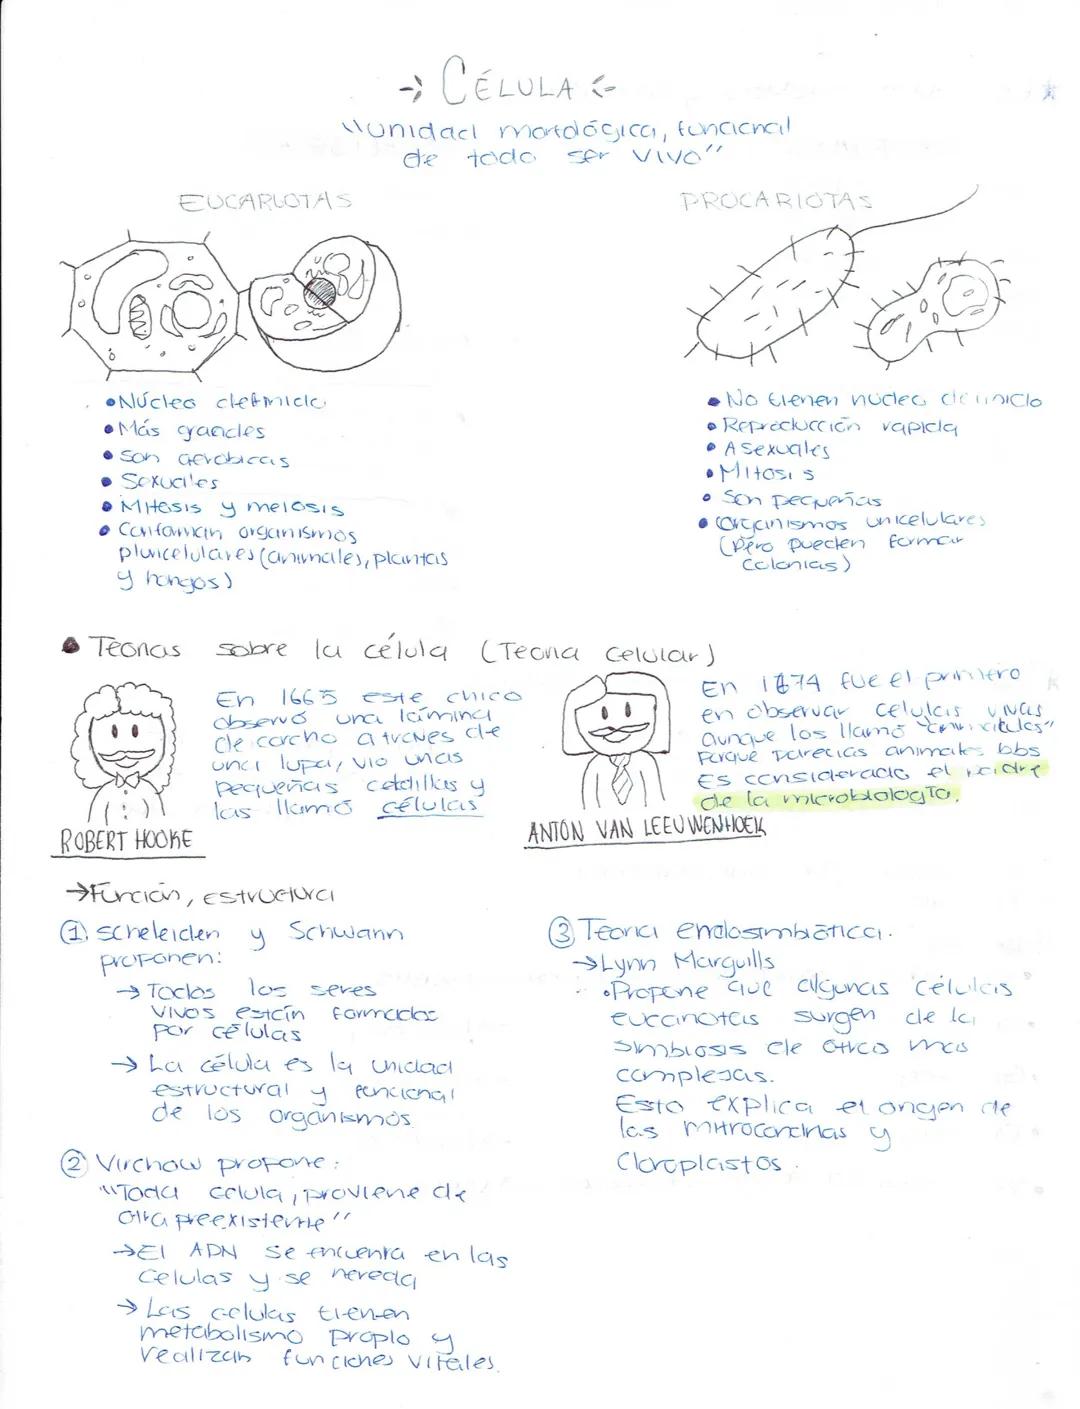 → CÉLULA ←
"unidad morfológica, funcional
de todo ser vivo"
EUCARIOTAS
• Núcleo definido
• Más grandes
• Son aerobicas
• Sexuales
• Mitosis y meiosis
• Conforman organismos
pluricelulares (animales, plantas
y hongos)
PROCARIOTAS
• No tienen nucleo definido
• Reproducción rapida
• Asexuales
• Mitosis
• Son pequeñas
• Organismos unicelulares
(Pero pueden formar
colonias)
• Teorias sobre la célula (Teoria celular)
En 1665 este chico
observó una lámina
de corcho a traves de
una lupa, vio unas
pequeñas celdillas y
las llamó células
ROBERT HOOKE
En 1674 fue el primero
en observar celulas vivas
aunque los llamó "animalculos"
porque parecias animales bbs
Es considerado el padre
de la microbiología.
ANTON VAN LEEUWENHOEK
→ Función, estructura
① scheleiden y Schwann
proponen:
→ Todos los seres
vivos están formados
por células
→ La célula es la unidad
estructural y funcional
de los organismos
② Virchow propone:
"Toda celula, proviene de
otra preexistente"
→ El ADN se encuentra en las
celulas y se hereda
→ Las celulas tienen
metabolismo propio y
realizan funciones vitales.
③ Teoria endosimbiótica.
→ Lynn Marguills
• Propone que algunas células
eucariotas surgen de la
simbiosis de otras mas
complejas.
Esto explica el origen de
las mitrocondrias y
Cloroplastos.